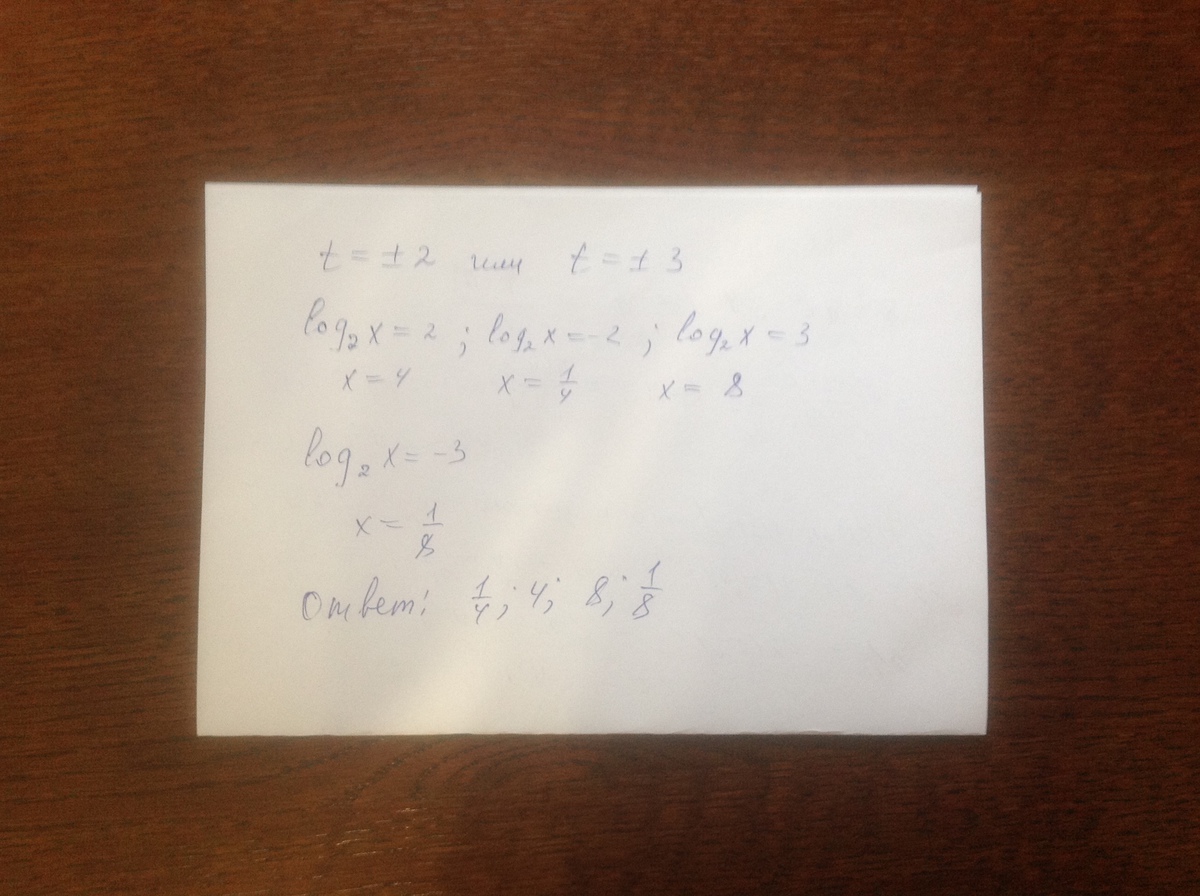 t = ± 2 или t = ± 3
log₂ x = 2 ; log₂ x = -2 ; log₂ x = 3
x = 4 x = 1/4 x = 8
log₂ x = -3
x = 1/8
Ответ: 1/4 ; 4; 8; 1/8